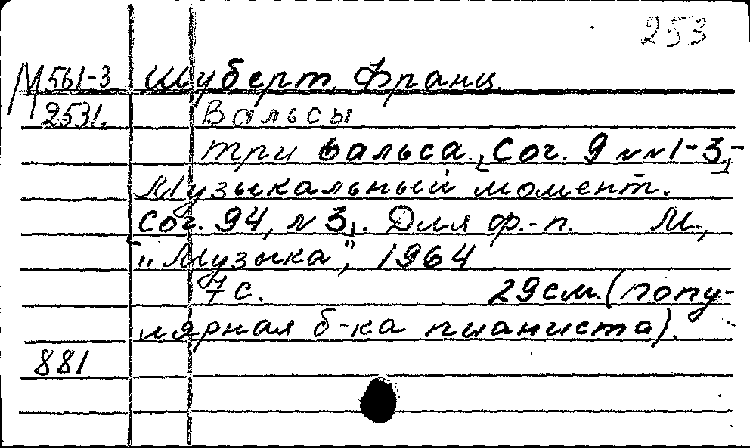 253
М561-3 Шуберт, Франц.
2531. Вальсы
Три вальса. Соч. 9 №№1-3,-
Музыкальный момент.
Соч. 94, №3. Для ф.-п. М.,
"Музыка", 1964
7 с. 29см. (попу-
лярная б-ка пианиста).
881